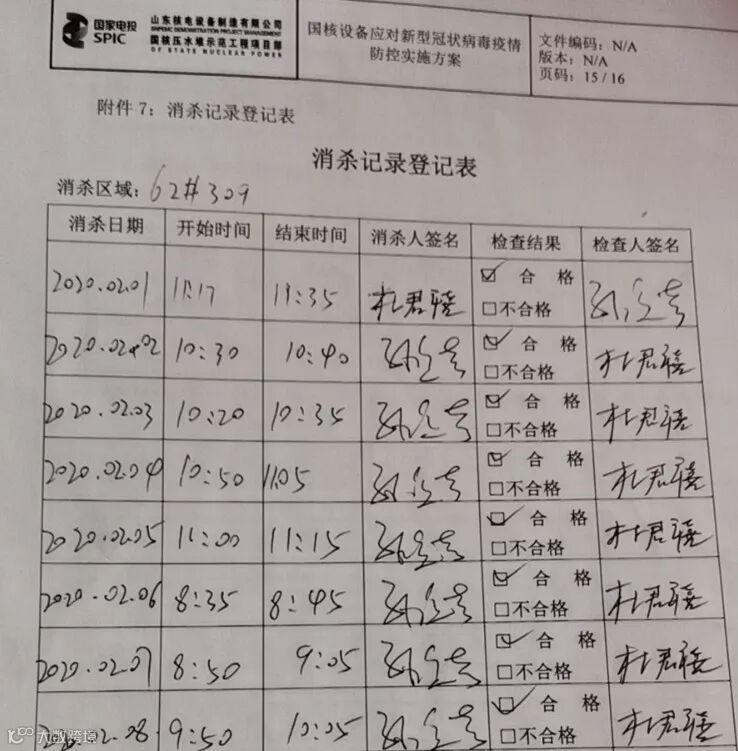 国家电投
SPIC
山东核电设备制造有限公司
SNPEMC DEMONSTRATION PROJECT MANAGEMENT
国核压水堆示范工程项目部
OF STATE NUCLEAR POWER
国核设备应对新型冠状病毒疫情
防控实施方案
文件编码：N/A
版本：N/A
页码：15 / 16
附件 7：消杀记录登记表
消杀记录登记表
消杀区域：62#309
消杀日期 开始时间 结束时间 消杀人签名 检查结果 检查人签名
2020.02.01 11:17 11:35 杜君禧 ☑ 合 格
□不合格
2020.02.02 10:30 10:40 ☑ 合 格 杜君禧
□不合格
2020.02.03 10:20 10:35 ☑ 合 格 杜君禧
□不合格
2020.02.04 10:50 11:05 ☑ 合 格 杜君禧
□不合格
2020.02.05 11:00 11:15 ☑ 合 格 杜君禧
□不合格
2020.02.06 8:35 8:45 ☑ 合 格 杜君禧
□不合格
2020.02.07 8:50 9:05 ☑ 合 格 杜君禧
□不合格
2020.02.08 9:50 10:05 ☑ 合 格 杜君禧
□不合格
大数跨境